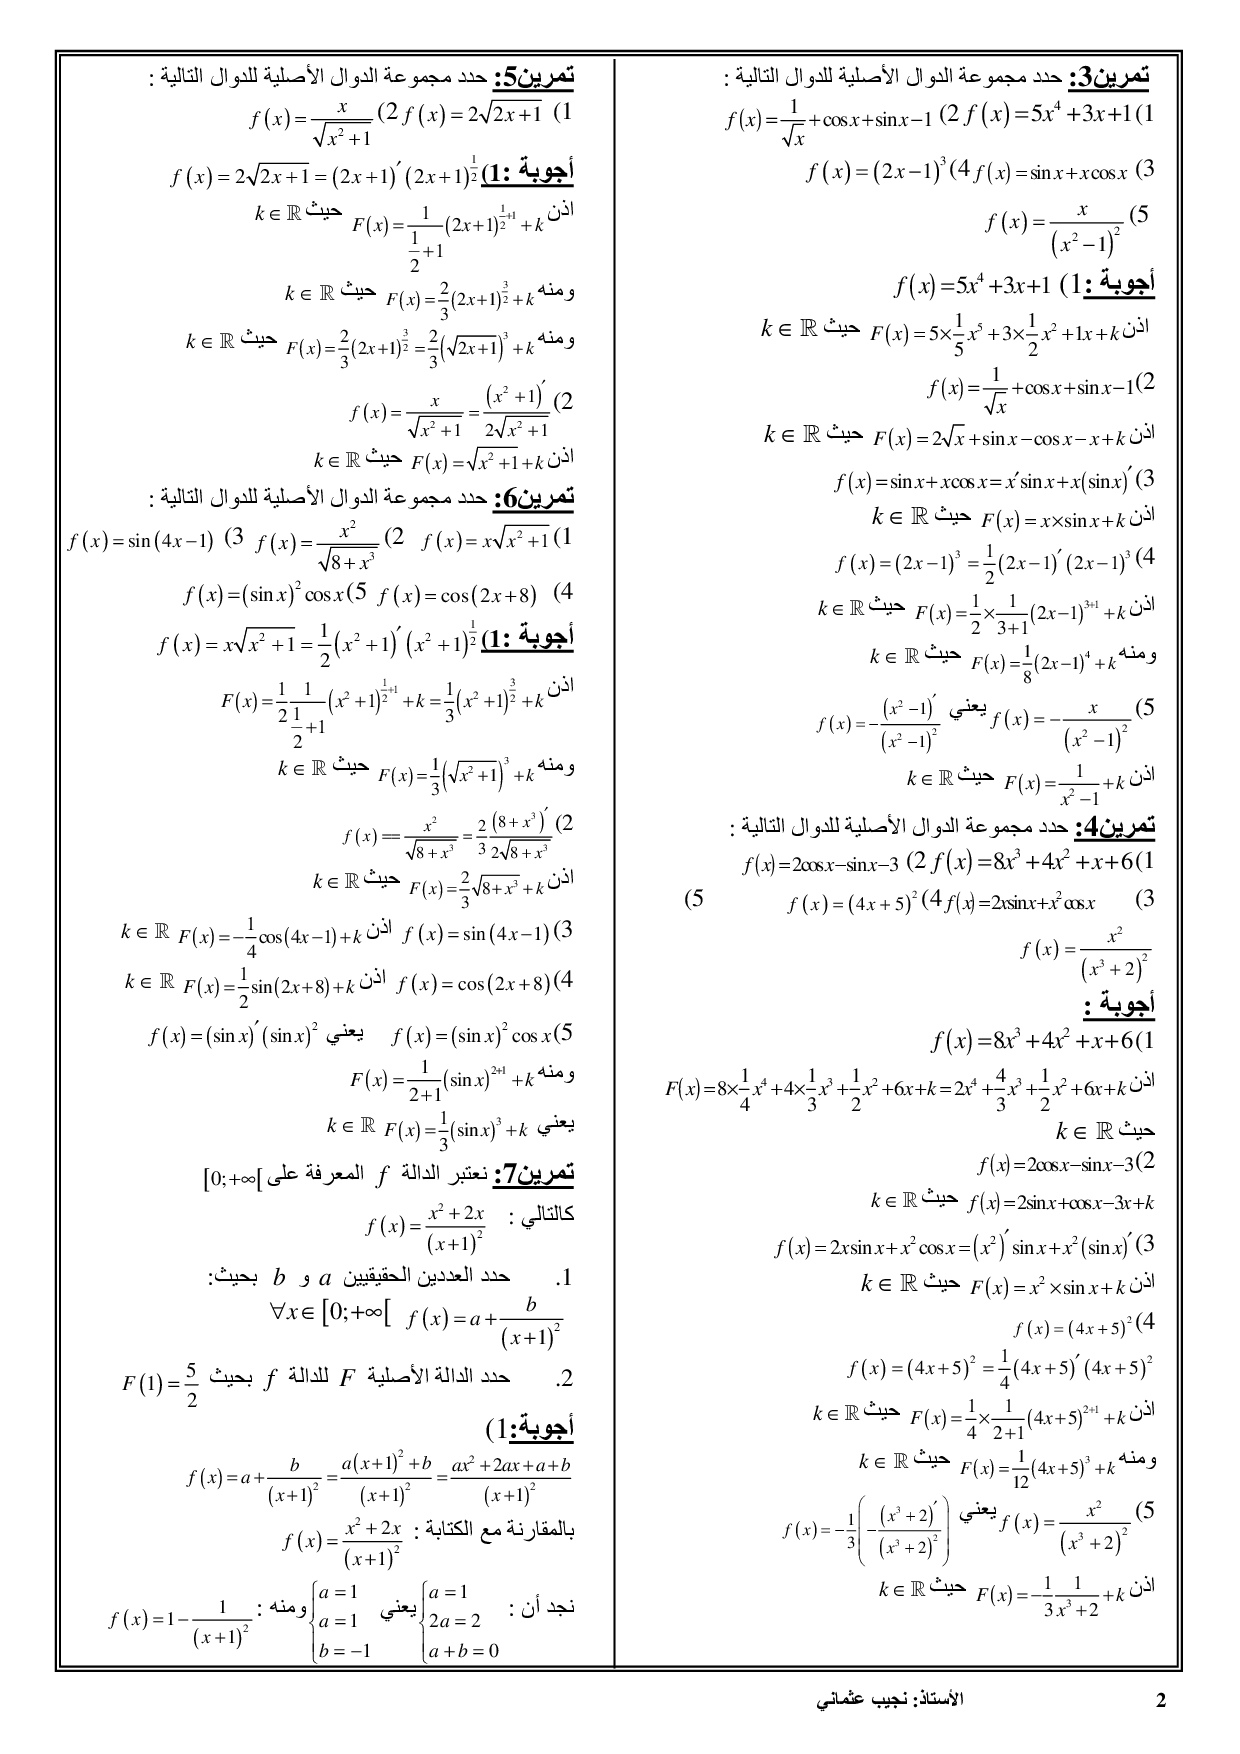 تمرين3: حدد مجموعة الدوال الأصلية للدوال التالية :
1) f(x)=5x⁴+3x+1 2) f(x)=1/√x+cosx+sinx−1
3) f(x)=sinx+xcosx 4) f(x)=(2x−1)³
5) f(x)=x/(x²−1)²
أجوبة :1) f(x)=5x⁴+3x+1
اذن F(x)=5×1/5 x⁵+3×1/2 x²+1x+k حيث k∈ℝ
2) f(x)=1/√x+cosx+sinx−1
اذن F(x)=2√x+sinx−cosx−x+k حيث k∈ℝ
3) f(x)=sinx+xcosx=x′sinx+x(sinx)′
اذن F(x)=x×sinx+k حيث k∈ℝ
4) f(x)=(2x−1)³=1/2(2x−1)′(2x−1)³
اذن F(x)=1/2×1/(3+1)(2x−1)³⁺¹+k حيث k∈ℝ
ومنه F(x)=1/8(2x−1)⁴+k حيث k∈ℝ
5) f(x)=−x/(x²−1)² يعني f(x)=−(x²−1)′/(x²−1)²
اذن F(x)=1/(x²−1)+k حيث k∈ℝ
تمرين4: حدد مجموعة الدوال الأصلية للدوال التالية :
1) f(x)=8x³+4x²+x+6 2) f(x)=2cosx−sinx−3
3) f(x)=2xsinx+x²cosx 4) f(x)=(4x+5)² 5)
f(x)=x²/(x³+2)²
أجوبة :
1) f(x)=8x³+4x²+x+6
اذن F(x)=8×1/4 x⁴+4×1/3 x³+1/2 x²+6x+k=2x⁴+4/3 x³+1/2 x²+6x+k
حيث k∈ℝ
2) f(x)=2cosx−sinx−3
f(x)=2sinx+cosx−3x+k حيث k∈ℝ
3) f(x)=2xsinx+x²cosx=(x²)′sinx+x²(sinx)′
اذن F(x)=x²×sinx+k حيث k∈ℝ
4) f(x)=(4x+5)²
f(x)=(4x+5)²=1/4(4x+5)′(4x+5)²
اذن F(x)=1/4×1/(2+1)(4x+5)²⁺¹+k حيث k∈ℝ
ومنه F(x)=1/12(4x+5)³+k حيث k∈ℝ
5) f(x)=x²/(x³+2)² يعني f(x)=−1/3(−(x³+2)′/(x³+2)²)
اذن F(x)=−1/3 1/(x³+2)+k حيث k∈ℝ
تمرين5: حدد مجموعة الدوال الأصلية للدوال التالية :
1) f(x)=2√(2x+1) 2) f(x)=x/√(x²+1)
أجوبة :1) f(x)=2√(2x+1)=(2x+1)′(2x+1)^(1/2)
اذن F(x)=1/(1/2+1)(2x+1)^(1/2+1)+k حيث k∈ℝ
ومنه F(x)=2/3(2x+1)^(3/2)+k حيث k∈ℝ
ومنه F(x)=2/3(2x+1)^(3/2)=2/3(√(2x+1))³+k حيث k∈ℝ
2) f(x)=x/√(x²+1)=(x²+1)′/(2√(x²+1))
اذن F(x)=√(x²+1)+k حيث k∈ℝ
تمرين6: حدد مجموعة الدوال الأصلية للدوال التالية :
1) f(x)=x√(x²+1) 2) f(x)=x²/√(8+x³) 3) f(x)=sin(4x−1)
4) f(x)=cos(2x+8) 5) f(x)=(sinx)²cosx
أجوبة :1) f(x)=x√(x²+1)=1/2(x²+1)′(x²+1)^(1/2)
اذن F(x)=1/2 1/(1/2+1)(x²+1)^(1/2+1)+k=1/3(x²+1)^(3/2)+k
ومنه F(x)=1/3(√(x²+1))³+k حيث k∈ℝ
2) f(x)==x²/√(8+x³)=2/3 (8+x³)′/(2√(8+x³))
اذن F(x)=2/3√(8+x³)+k حيث k∈ℝ
3) f(x)=sin(4x−1) اذن F(x)=−1/4cos(4x−1)+k k∈ℝ
4) f(x)=cos(2x+8) اذن F(x)=1/2sin(2x+8)+k k∈ℝ
5) f(x)=(sinx)²cosx يعني f(x)=(sinx)′(sinx)²
ومنه F(x)=1/(2+1)(sinx)²⁺¹+k
يعني F(x)=1/3(sinx)³+k k∈ℝ
تمرين7: نعتبر الدالة f المعرفة على [0;+∞[
كالتالي : f(x)=(x²+2x)/(x+1)²
1. حدد العددين الحقيقيين a و b بحيث:
∀x∈[0;+∞[ f(x)=a+b/(x+1)²
2. حدد الدالة الأصلية F للدالة f بحيث F(1)=5/2
أجوبة:1)
f(x)=a+b/(x+1)²=(a(x+1)²+b)/(x+1)²=(ax²+2ax+a+b)/(x+1)²
بالمقارنة مع الكتابة : f(x)=(x²+2x)/(x+1)²
نجد أن : {a=1 2a=2 a+b=0 يعني {a=1 a=1 b=−1 ومنه : f(x)=1−1/(x+1)²
الأستاذ: نجيب عثماني 2